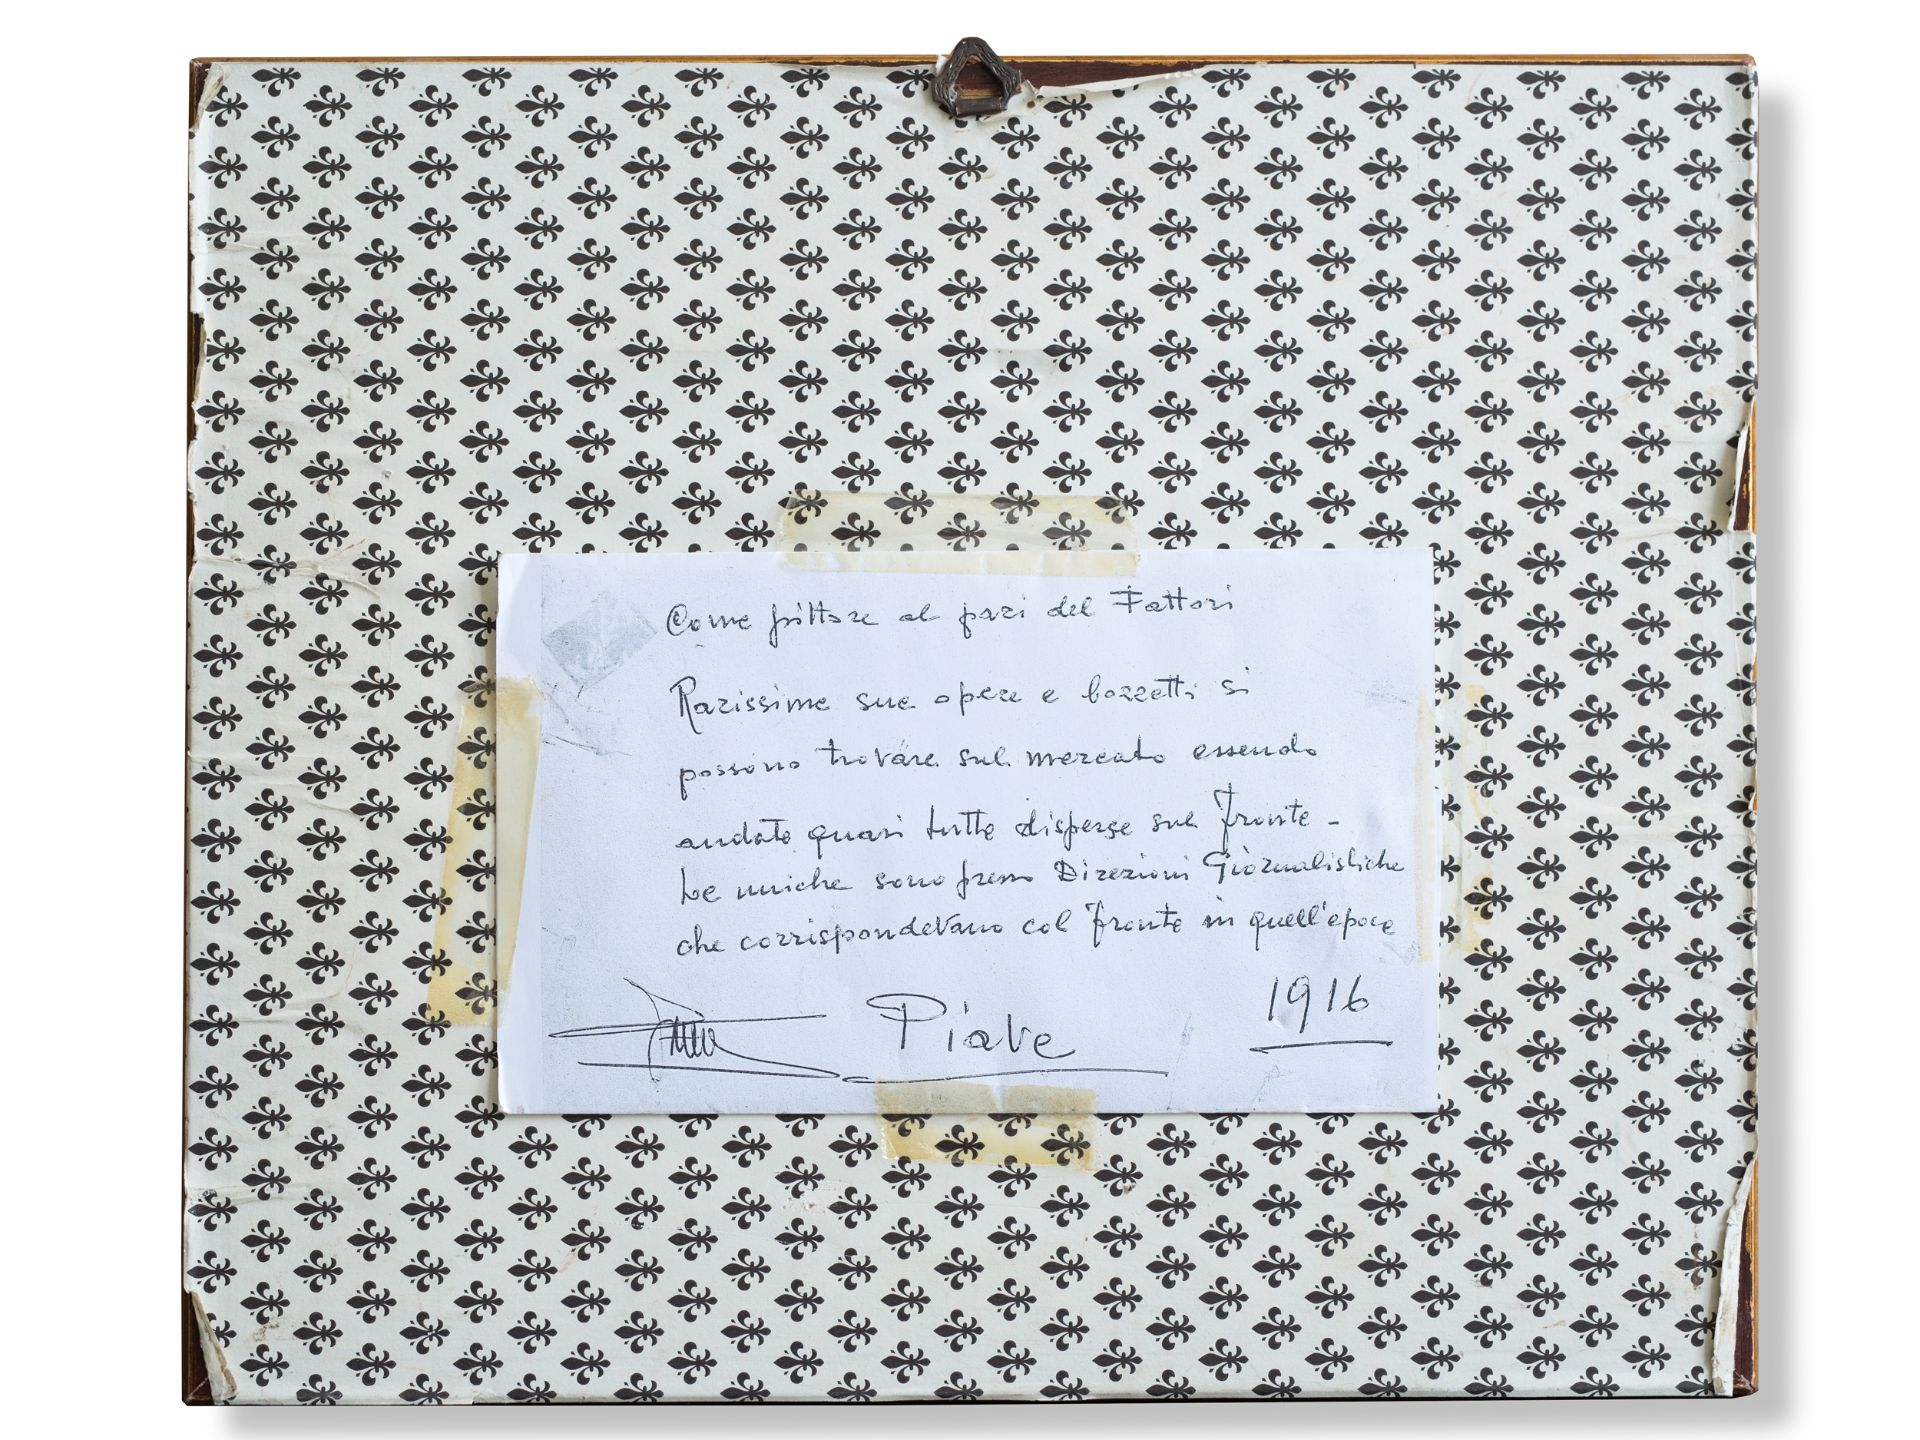 Come pittore al pari del Fattori
Rarissime sue opere e bozzetti si
possono trovare sul mercato essendo
andate quasi tutte disperse sul fronte -
Le uniche sono presso Direzioni Giornalistiche
che corrispondevano col fronte in quell'epoca
Piave 1916